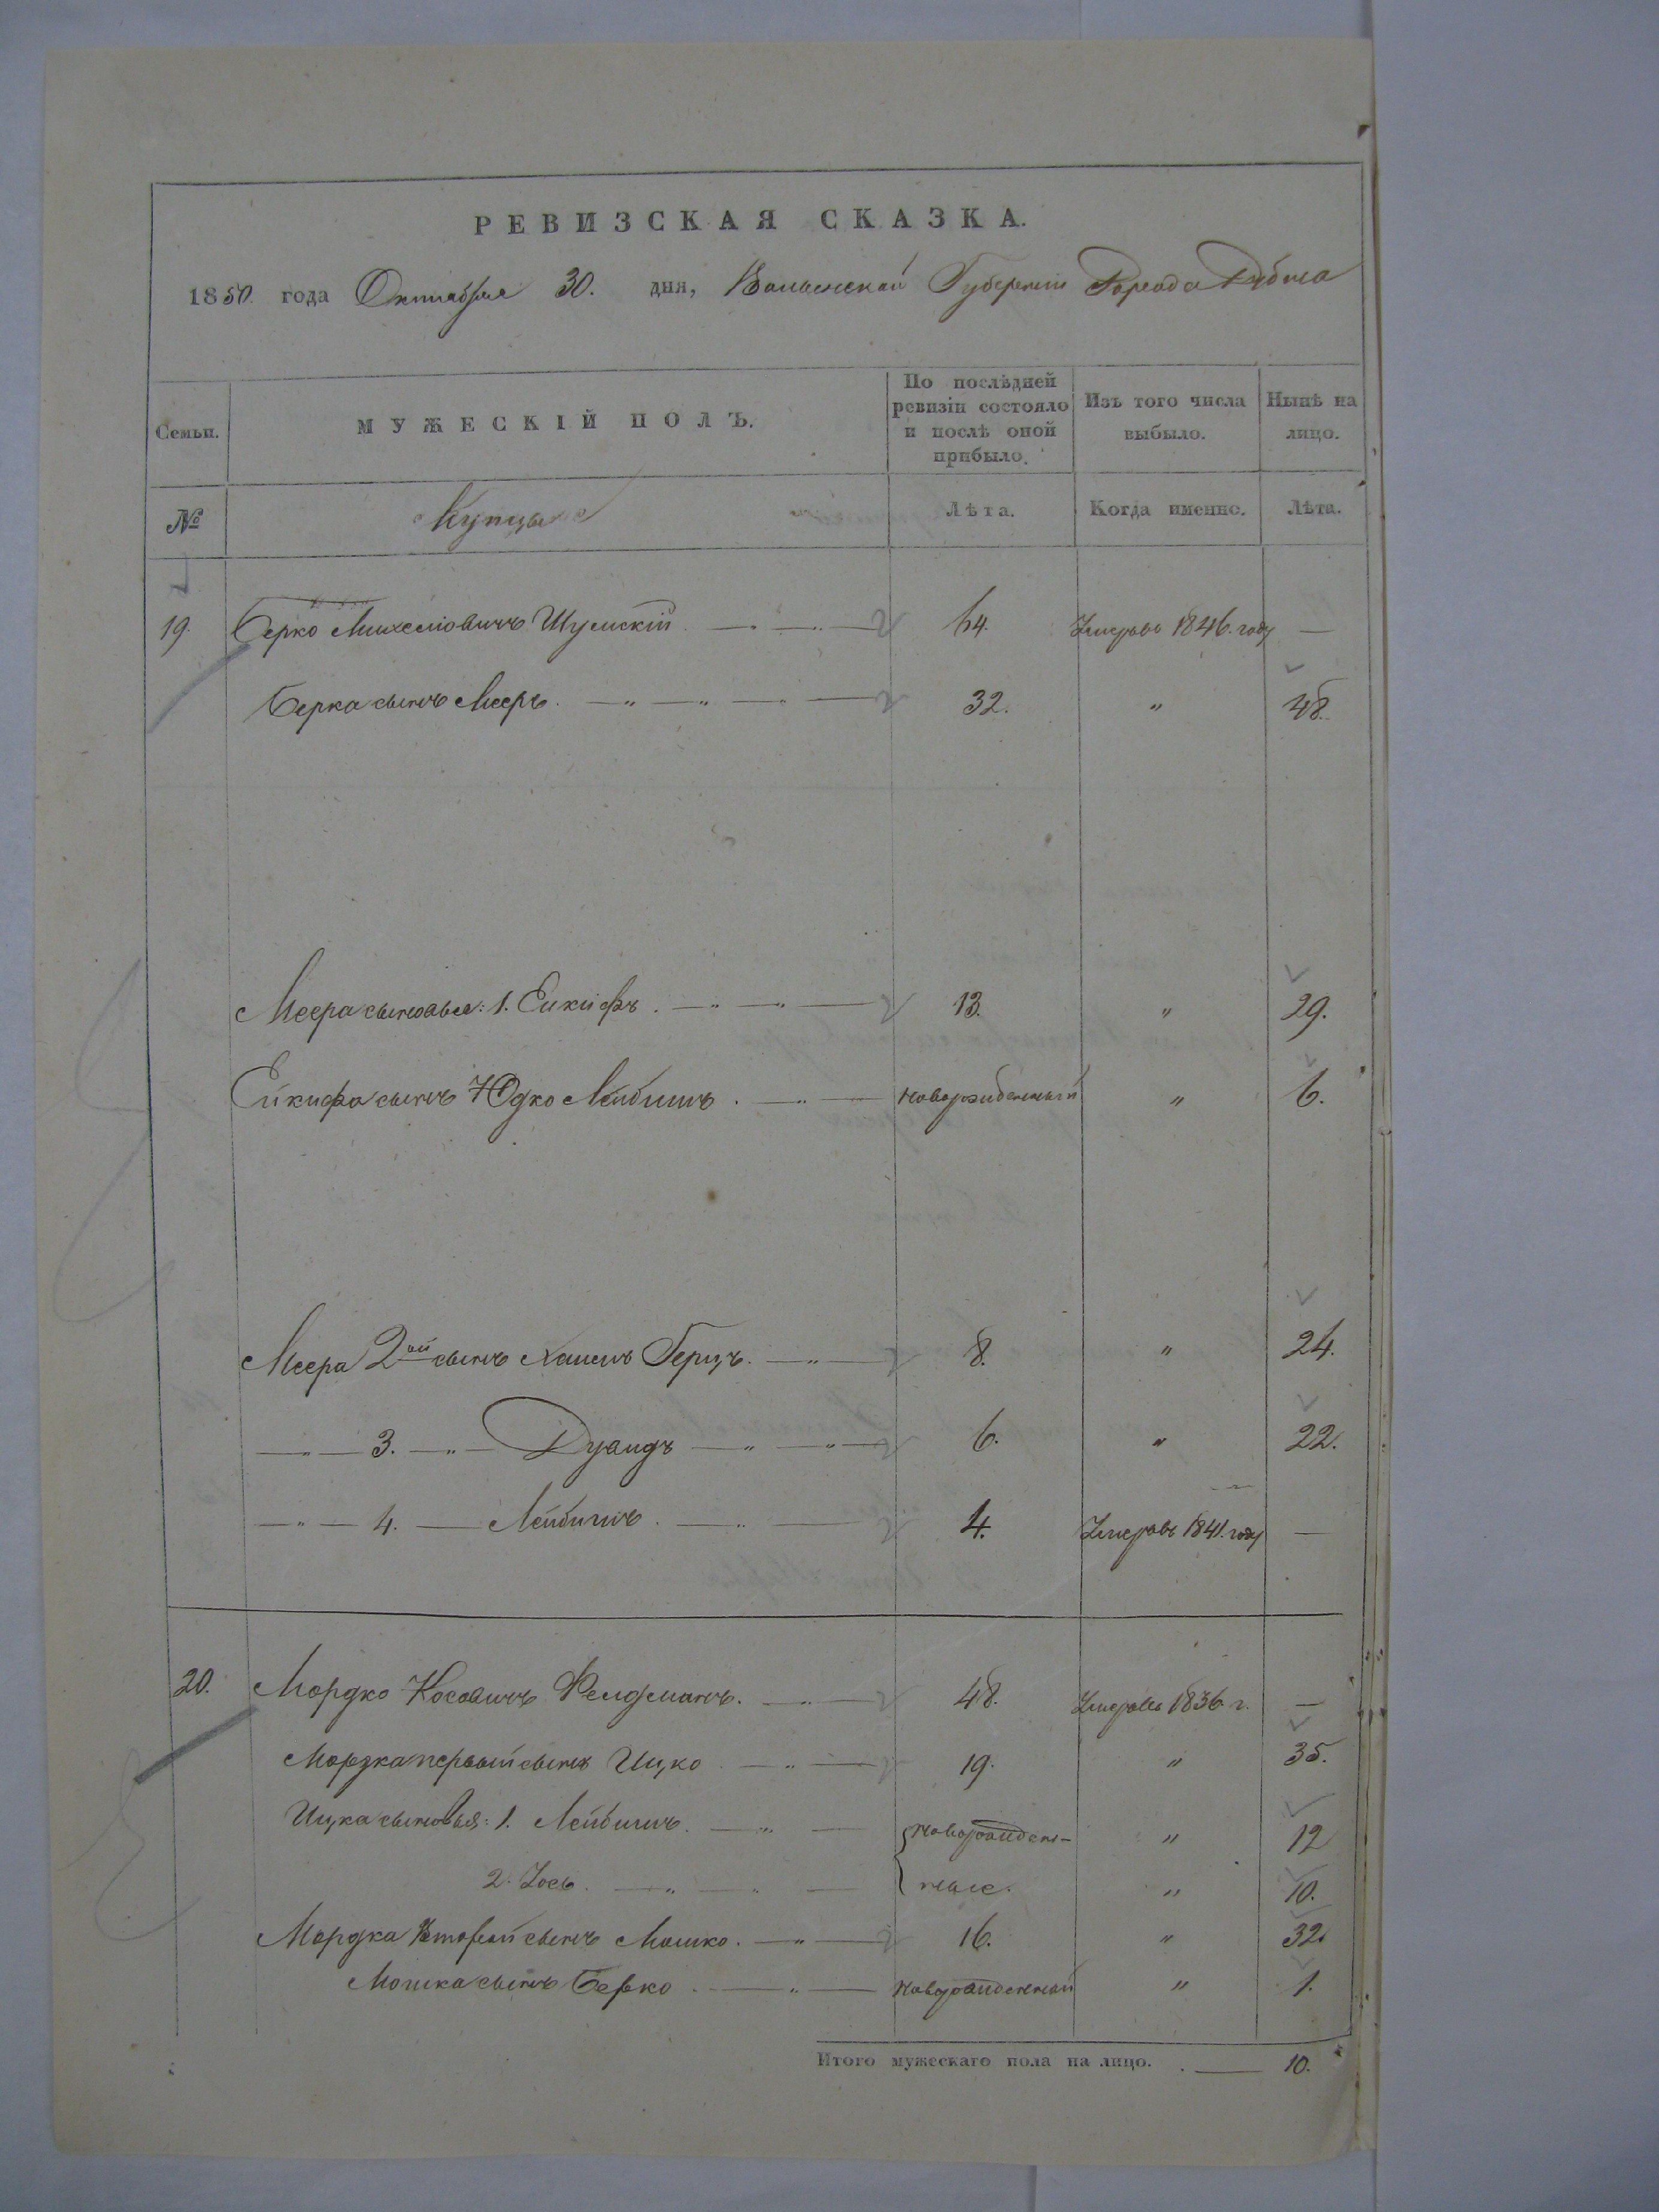 РЕВИЗСКАЯ СКАЗКА.
1850 года Октября 30. дня, Волынской Губернии Города Дубна
Семьи. МУЖЕСКІЙ ПОЛЪ. По послѣдней ревизіи состояло и послѣ оной прибыло. Изъ того числа выбыло. Нынѣ на лицо.
№ Купцы Лѣта. Когда именно. Лѣта.
19. Берко Михелiовичъ Шумскій 64. Умеръ въ 1846. году —
Берка сынъ Мееръ. 32. " 48.
Меера сыновья: 1. Ейкифъ. 13. " 29.
Ейкифа сынъ Юдко Лейбишъ. новорожденный " 6.
Меера 2ой сынъ Хаимъ Герцъ. 8. " 24.
— " — 3. — " — Дувидъ 6. " 22.
— " — 4. — Лейбишъ. 4. Умеръ въ 1841. году —
20. Мордко Іосовичъ Фелдманъ. 48. Умеръ въ 1836 г. —
Мордка первый сынъ Ицко 19. " 35.
Ицка сыновья: 1. Лейбишъ. новорожден- " 12
2. Зось. ные. " 10.
Мордка Второй сынъ Мошко. 16. " 32.
Мошка сынъ Берко новорожденный " 1.
Итого мужескаго пола на лицо. 10.